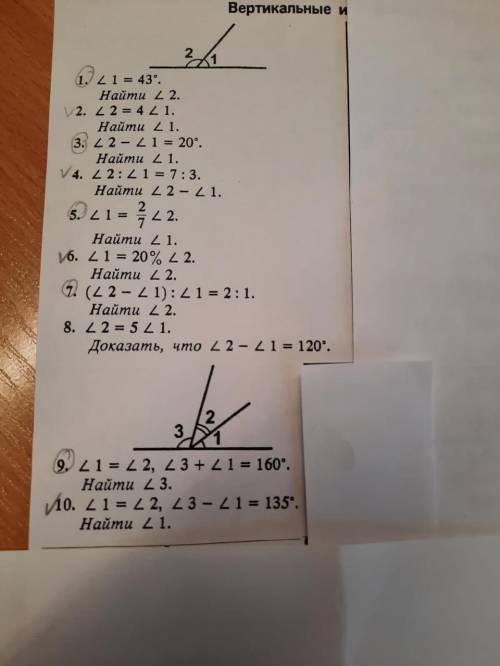 Вертикальные и
2 1
1. ∠ 1 = 43°.
Найти ∠ 2.
2. ∠ 2 = 4 ∠ 1.
Найти ∠ 1.
3. ∠ 2 − ∠ 1 = 20°.
Найти ∠ 1.
4. ∠ 2 : ∠ 1 = 7 : 3.
Найти ∠ 2 − ∠ 1.
5. ∠ 1 = 2/7 ∠ 2.
Найти ∠ 1.
6. ∠ 1 = 20% ∠ 2.
Найти ∠ 2.
7. (∠ 2 − ∠ 1) : ∠ 1 = 2 : 1.
Найти ∠ 2.
8. ∠ 2 = 5 ∠ 1.
Доказать, что ∠ 2 − ∠ 1 = 120°.
3 2 1
9. ∠ 1 = ∠ 2, ∠ 3 + ∠ 1 = 160°.
Найти ∠ 3.
10. ∠ 1 = ∠ 2, ∠ 3 − ∠ 1 = 135°.
Найти ∠ 1.